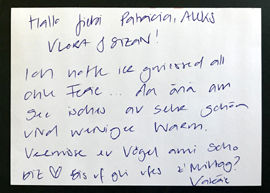 Hallo liebi Patricia, Aleks
Vlora & Sizan!
Ich hoffe ier gniessed all
Ohni Ferie... da änä am
See isches av sehr schön
und weniger warm.
Vermisse er Vögel ami scho
biz ♡ Bis uf gli ufes z'Mittag?